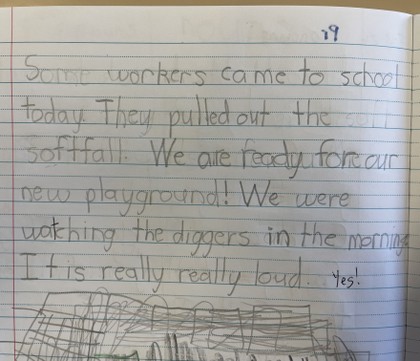 19
Some workers came to school
today. They pulled out the
softfall. We are ready fore our
new playground! We were
watching the diggers in the morning
It is really really loud. Yes!